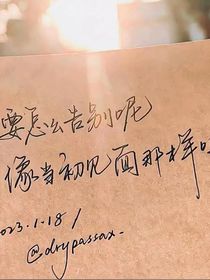 要怎么告别呢
像当初见面那样吗
2023.1.18/
@drypassax.